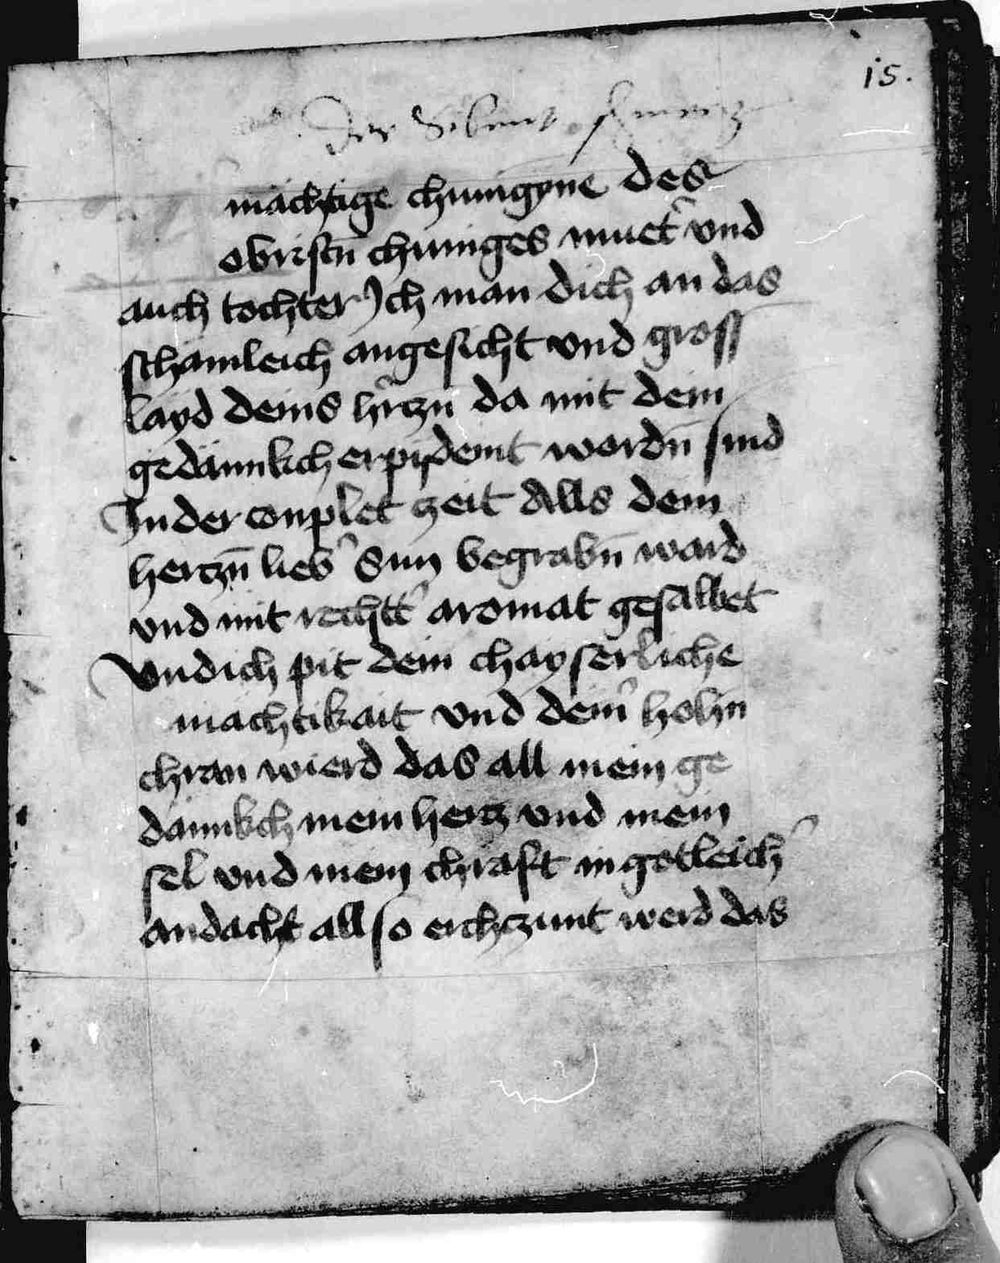 15.
Der Sibent schmerz
mächtige chunigynne des
obristn̄ chuniges muet᷑ vnd
auch tochter Ich man dich an das
schämleich angesicht vnd gross
layd deins h᷑tzn̄ da mit dein
gedännkch erpidemt wordn̄ sind
In der conplet zeit Alls dein
hertzn̄ lieb᷑ Sun begrabn̄ ward
vnd mit rechtt᷑ aromat gesallbet
Vnd ich pit dein chayserliche
mächtikait vnd dein᷑ hohn̄
chran wierd das all mein ge
dännkch mein hertz vnd mein
sel vnd mein chraft in gotleich᷑
andacht all so erchczunt werd das